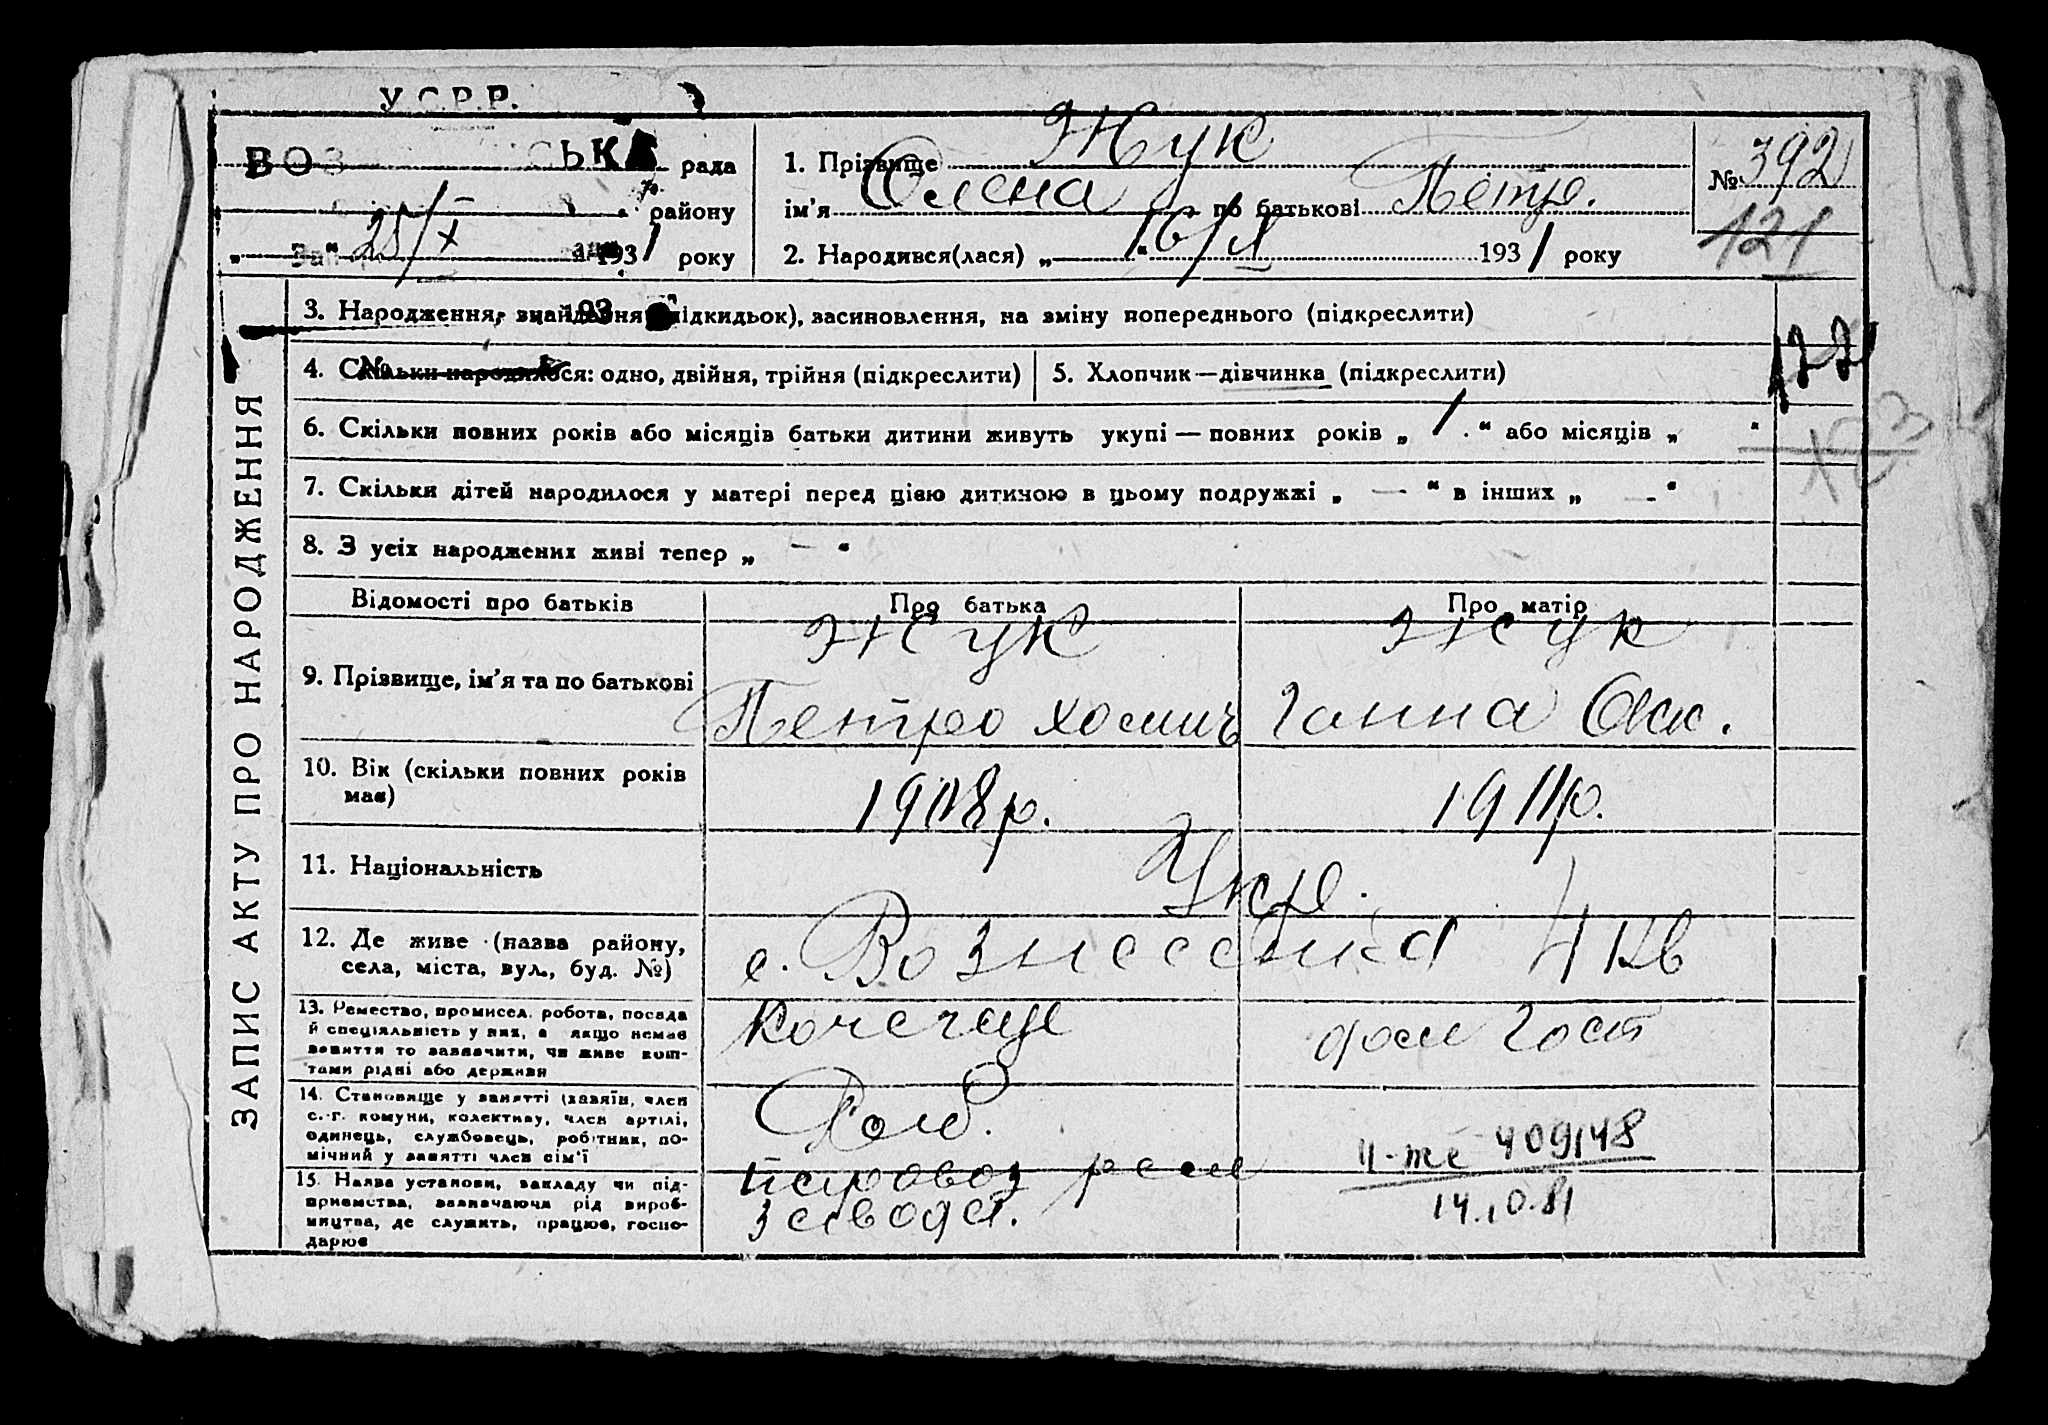 У.С.Р.Р.
ВОЗ СЬКА рада
району
25/X 1931 року
1. Прізвище Жук
ім'я Олена по батькові Петр.
2. Народився(лася) „ 16/ “ 1931 року
№ 392
121
122
ЗАПИС АКТУ ПРО НАРОДЖЕННЯ
3. Народження, знайдення (підкидьок), васиновлення, на зміну попереднього (підкреслити)
4. Скільки народилося: одно, двійня, трійня (підкреслити)
5. Хлопчик—дівчинка (підкреслити)
6. Скільки повних років або місяців батьки дитини живуть укупі — повних років „ 1 . “ або місяців „ “
7. Скільки дітей народилося у матері перед цією дитиною в цьому подружжі „ — “ в інших „ — “
8. З усіх народжених живі тепер „ — “
Відомості про батьків Про батька Про матір
9. Прізвище, ім'я та по батькові
Жук
Петро Хомич
Жук
Ганна
10. Вік (скільки повних років
має)
1908р.
1911р.
11. Національність
Укр.
12. Де живе (назва району,
села, міста, вул., буд. №)
с. Вознесенка 4 кв
13. Ремество, промисел. робота, посада
й спеціяльність у них, а якщо немає
заняття то зазначити, чи живе кош-
тами рідні або держави
Кочегар
дом гост
14. Становище у занятті (хазяїн, член
с.-г. комуни, колективу, член артілі,
одинець, службовець, робітник, по-
мічний у занятті член сім'ї
Роб.
15. Назва установи, закладу чи під-
приємства, зазначаючи рід вироб-
ництва, де служить, працює, госпо-
дарює
паровоз рем
завода.
409148
14.10.81